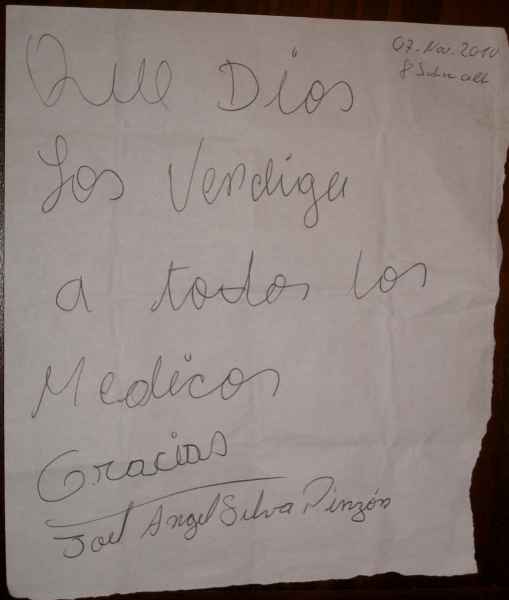 07. Nov. 2010
Que Dios
Los Vendiga
a todos los
Medicos
Gracias
Joel Angel Silva Pinzón